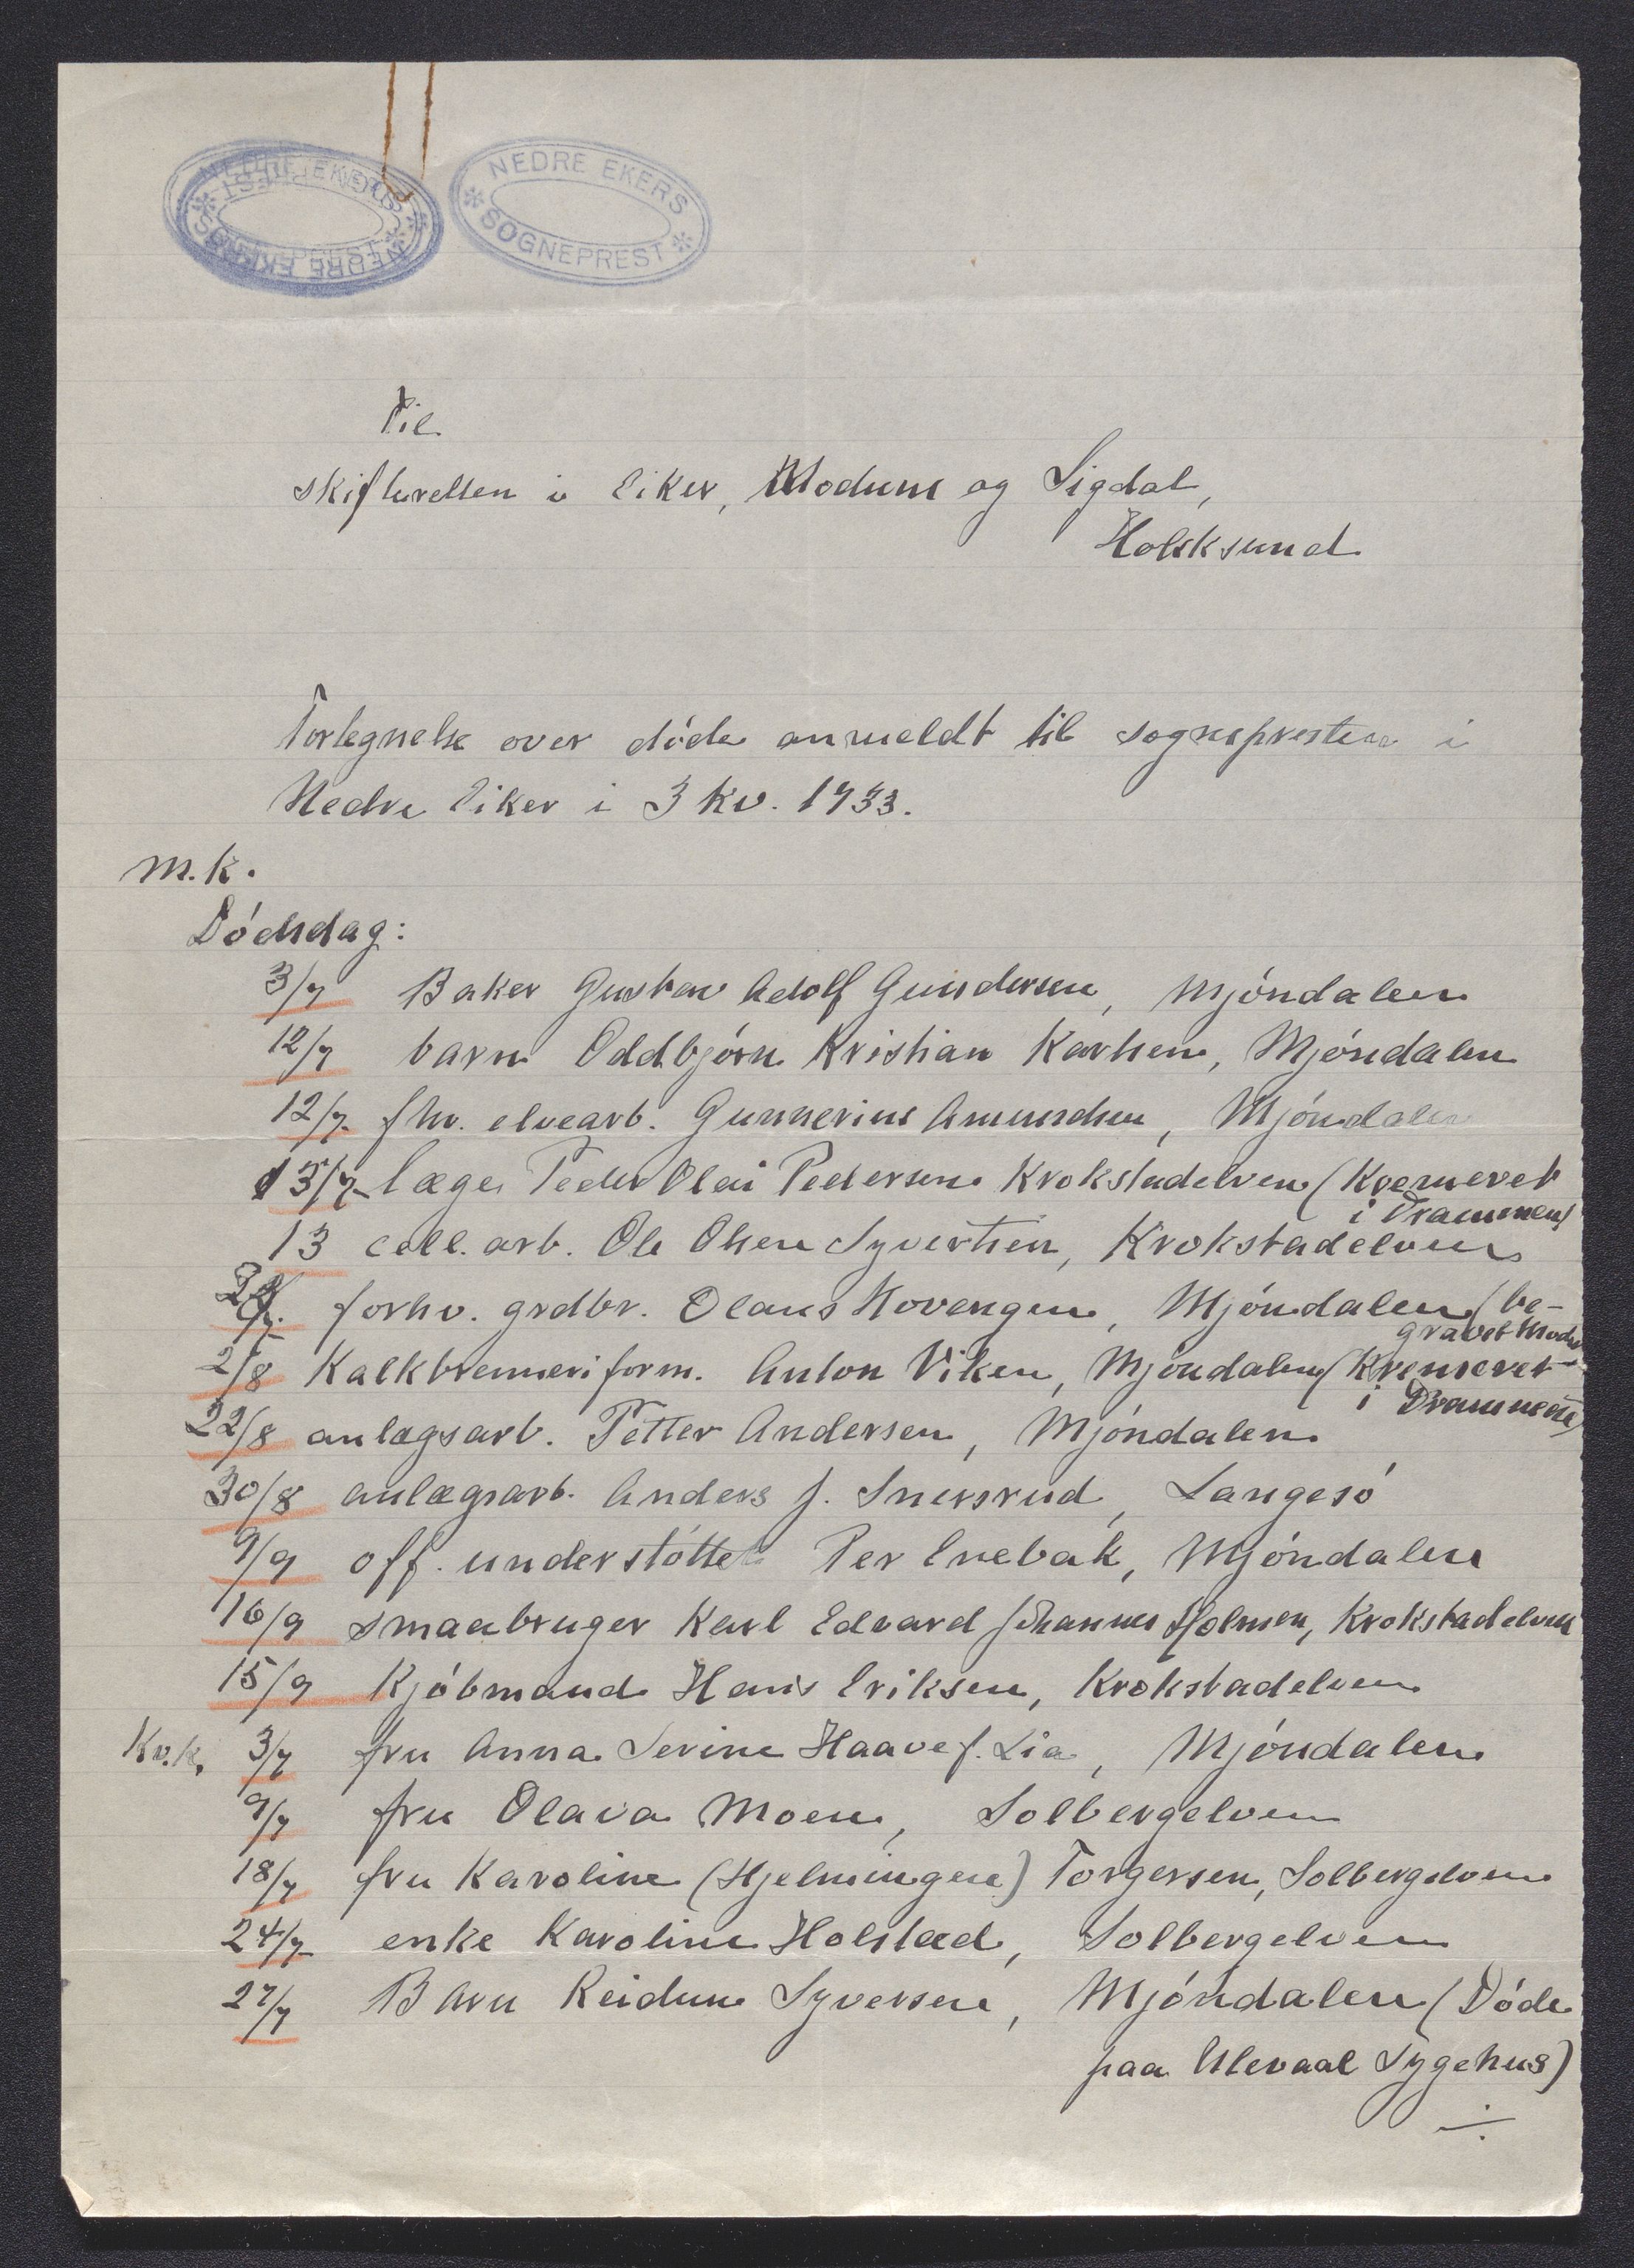 NEDRE EKERS
SOGNEPREST
NEDRE EKERS
SOGNEPREST
Til
skifteretten i Eiker, Modum og Sigdal,
Hokksund
Fortegnelse over döde anmeldt til sogneprestene i
Nedre Eiker i 3 kv. 1933.
M.k.
Dödsdag:
3/7 Baker Gustav Adolf Gundersen, Mjöndalen
12/7 barn Oddbjörn Kristian Karlsen, Mjöndalen
12/7 fhv. elvearb. Gunnerius Amundsen, Mjöndalen
13/7 læge Peder Olai Pedersen Krokstadelven (Kremeret
i Drammen)
13 cell. arb. Ole Olsen Syvertsen, Krokstadelven
forhv. grdbr. Olaus Hovengen, Mjöndalen (be-
gravet Modum
2/8 Kalkbrenneriform. Anton Viken, Mjöndalen (Kremeret
i Drammen)
22/8 anlægsarb. Petter Andersen, Mjöndalen
30/8 anlægsarb. Anders J. Snersrud, Langesö
9/9 off. understöttet Per Enebak, Mjöndalen
16/9 smaabruger Karl Edvard Johannes Holmen, Krokstadelven
15/9 Kjöbmand Hans Eriksen, Krokstadelven
Kv.k. 3/7 fru Anna Serine Haave f. Lia, Mjöndalen
9/7 fru Olava Moen, Solbergelven
18/7 fru Karoline (Hjelmingen) Torgersen, Solbergelven
24/7 enke Karoline Holstad, Solbergelven
27/7 Barn Reidun Syversen, Mjöndalen (Döde
paa Ulevaal Sygehus)